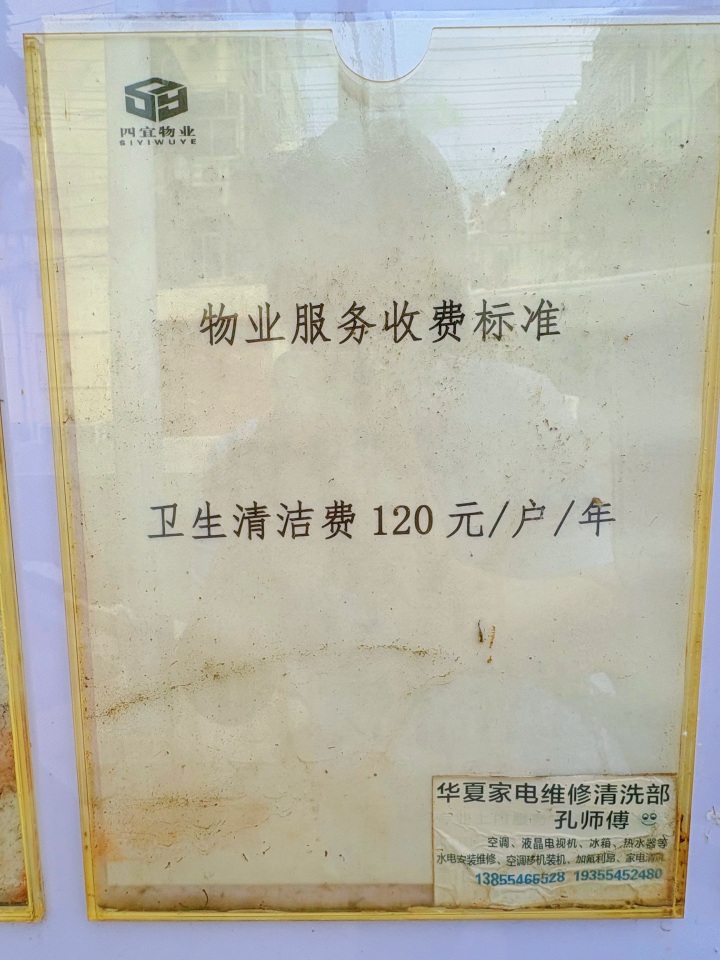 四宜物业
SIYIWUYE
物业服务收费标准
卫生清洁费120元/户/年
华夏家电维修清洗部
孔师傅
空调、液晶电视机、冰箱、热水器等
水电安装维修、空调移机装机、加氟利昂、家电清洗
13855465528 19355452480